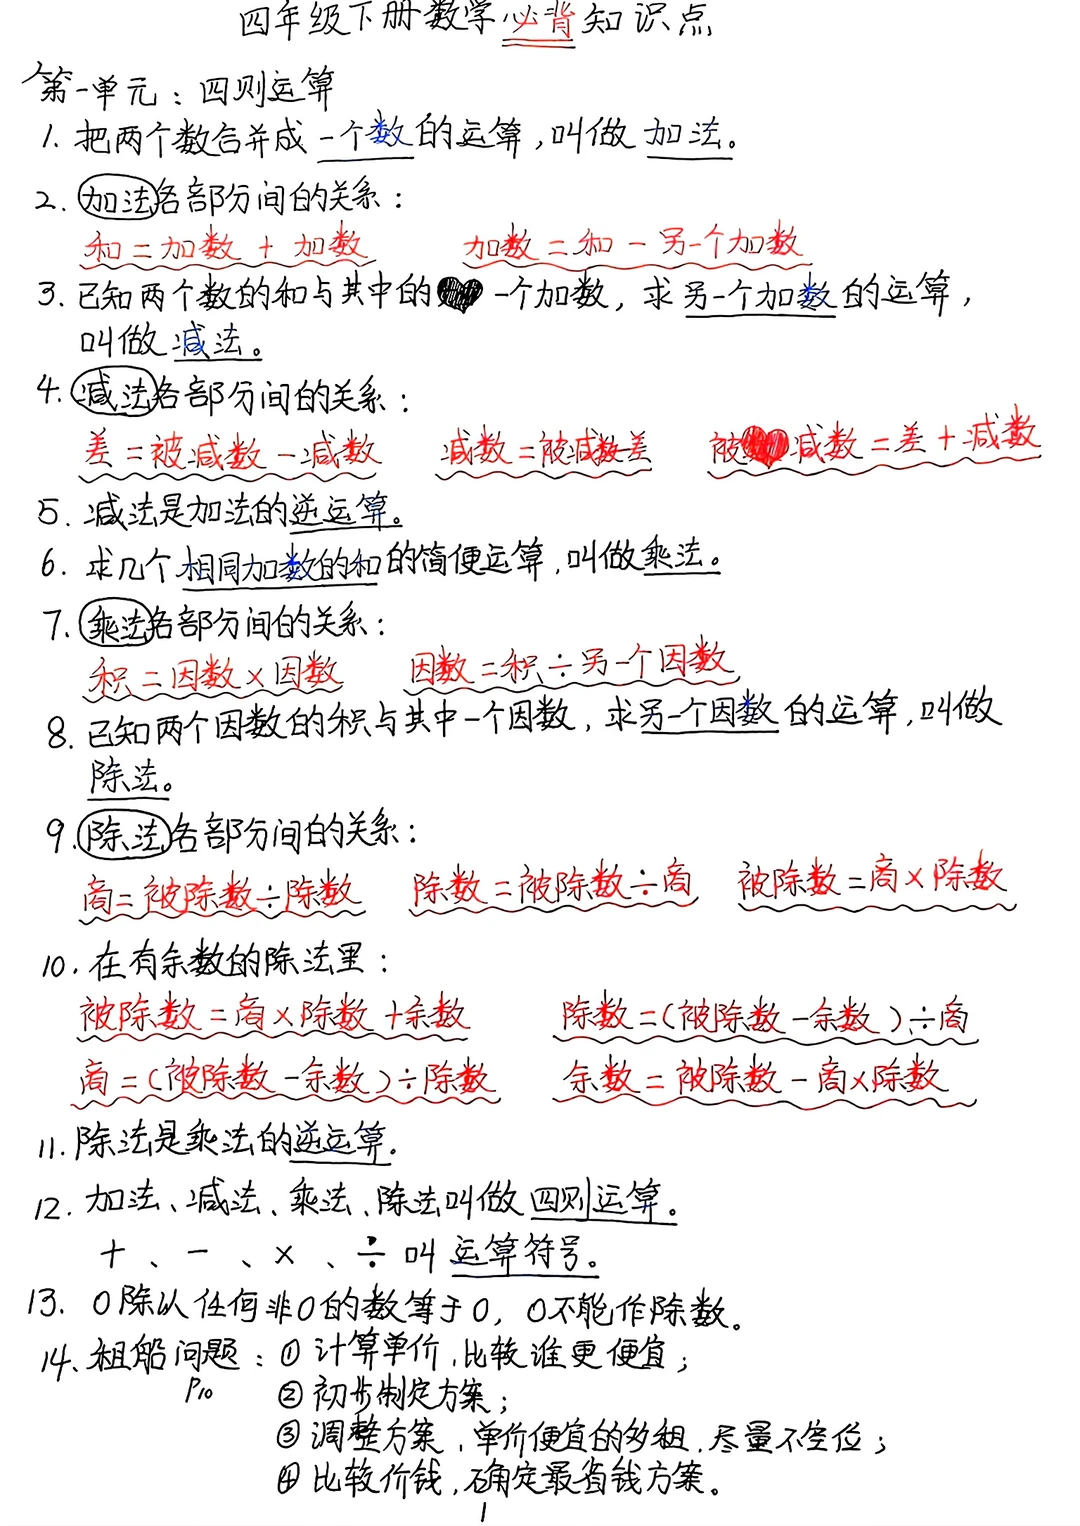 四年级下册数学必背知识点
第一单元：四则运算
1. 把两个数合并成一个数的运算,叫做加法。
2. 加法各部分间的关系：
和=加数+加数 加数=和-另一个加数
3. 已知两个数的和与其中的一个加数,求另一个加数的运算,
叫做减法。
4. 减法各部分间的关系：
差=被减数-减数 减数=被减数-差 被减数=差+减数
5. 减法是加法的逆运算。
6. 求几个相同加数的和的简便运算,叫做乘法。
7. 乘法各部分间的关系：
积=因数×因数 因数=积÷另一个因数
8. 已知两个因数的积与其中一个因数,求另一个因数的运算,叫做
除法。
9. 除法各部分间的关系：
商=被除数÷除数 除数=被除数÷商 被除数=商×除数
10. 在有余数的除法里：
被除数=商×除数+余数 除数=(被除数-余数)÷商
商=(被除数-余数)÷除数 余数=被除数-商×除数
11. 除法是乘法的逆运算.
12. 加法、减法、乘法、除法叫做四则运算。
+、-、×、÷叫运算符号。
13. 0除以任何非0的数等于0, 0不能作除数。
14、租船问题：①计算单价,比较谁更便宜;
P10 ②初步制定方案;
③调整方案,单价便宜的多租,尽量不空位;
④比较价钱,确定最省钱方案。
1